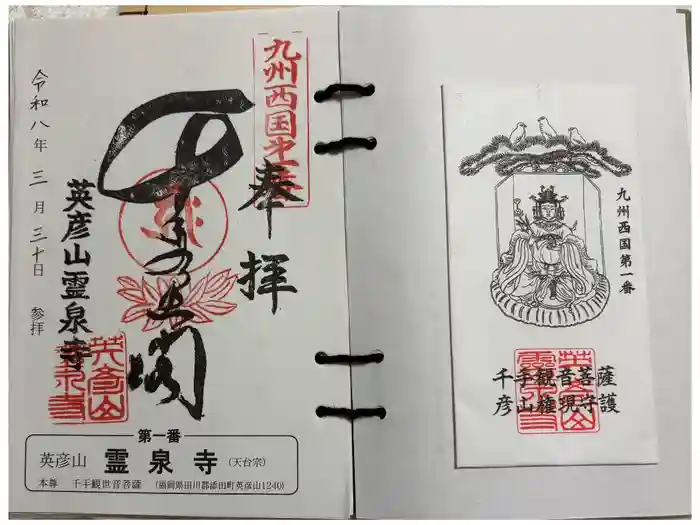 九州西国㐧一番
奉拝
令和八年三月三十日 参拝
英彦山霊泉寺
英彦山
霊泉寺
第一番
英彦山 霊泉寺 (天台宗)
本尊 千手観世音菩薩 (福岡県田川郡添田町英彦山1240)
九州西国第一番
千手観音菩薩
彦山権現守護
英彦山
霊泉寺